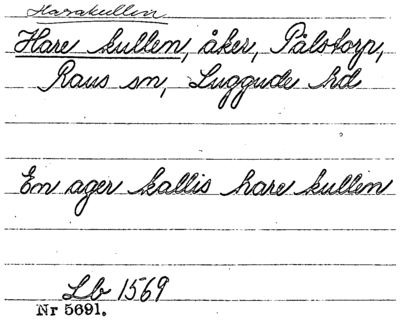 Harakullen
Hare kullen, åker, Pålstorp,
Raus sn, Luggude hd
En ager kallis hare kullen
Lb 1569
Nr 5691.